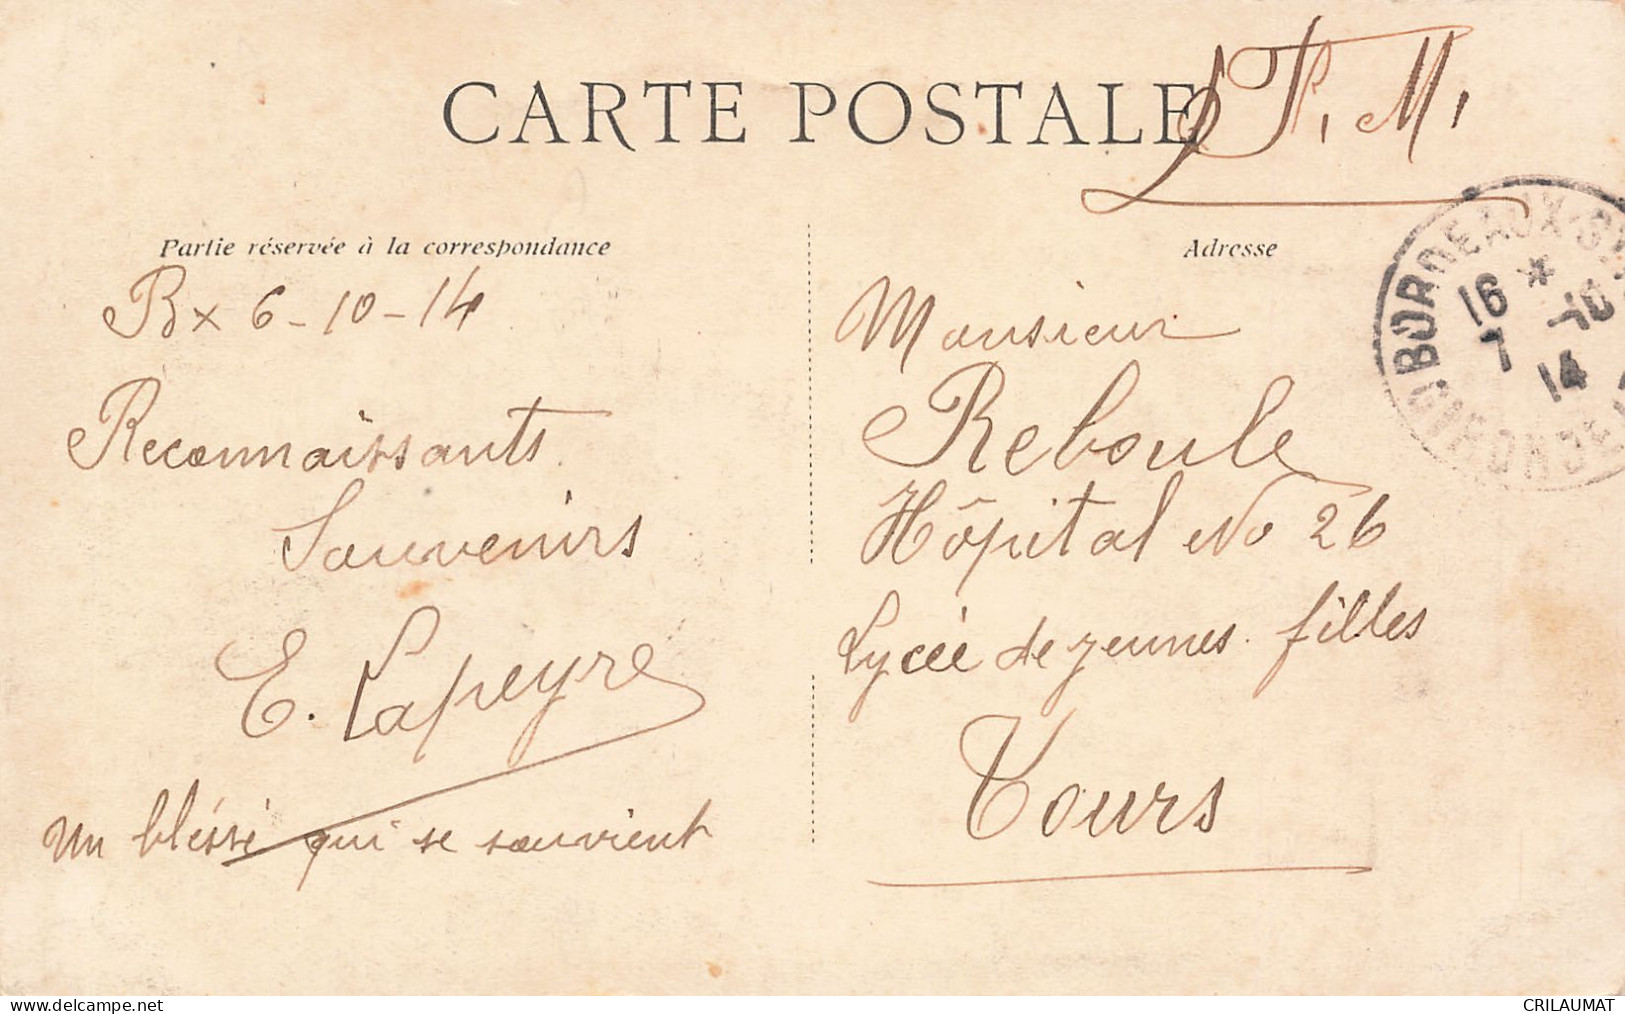 CARTE POSTALE
F. M.
Partie réservée à la correspondance
Bx 6-10-14
Reconnaissants
Souvenirs
E. Lapeyre
Un bléssé qui se souvient
Adresse
Monsieur
Reboule
Hôpital No 26
Lycée de jeunes filles
Tours
BORDEAUX
GIRONDE
16 * 
7 -10
14
www.delcampe.net
CRILAUMAT